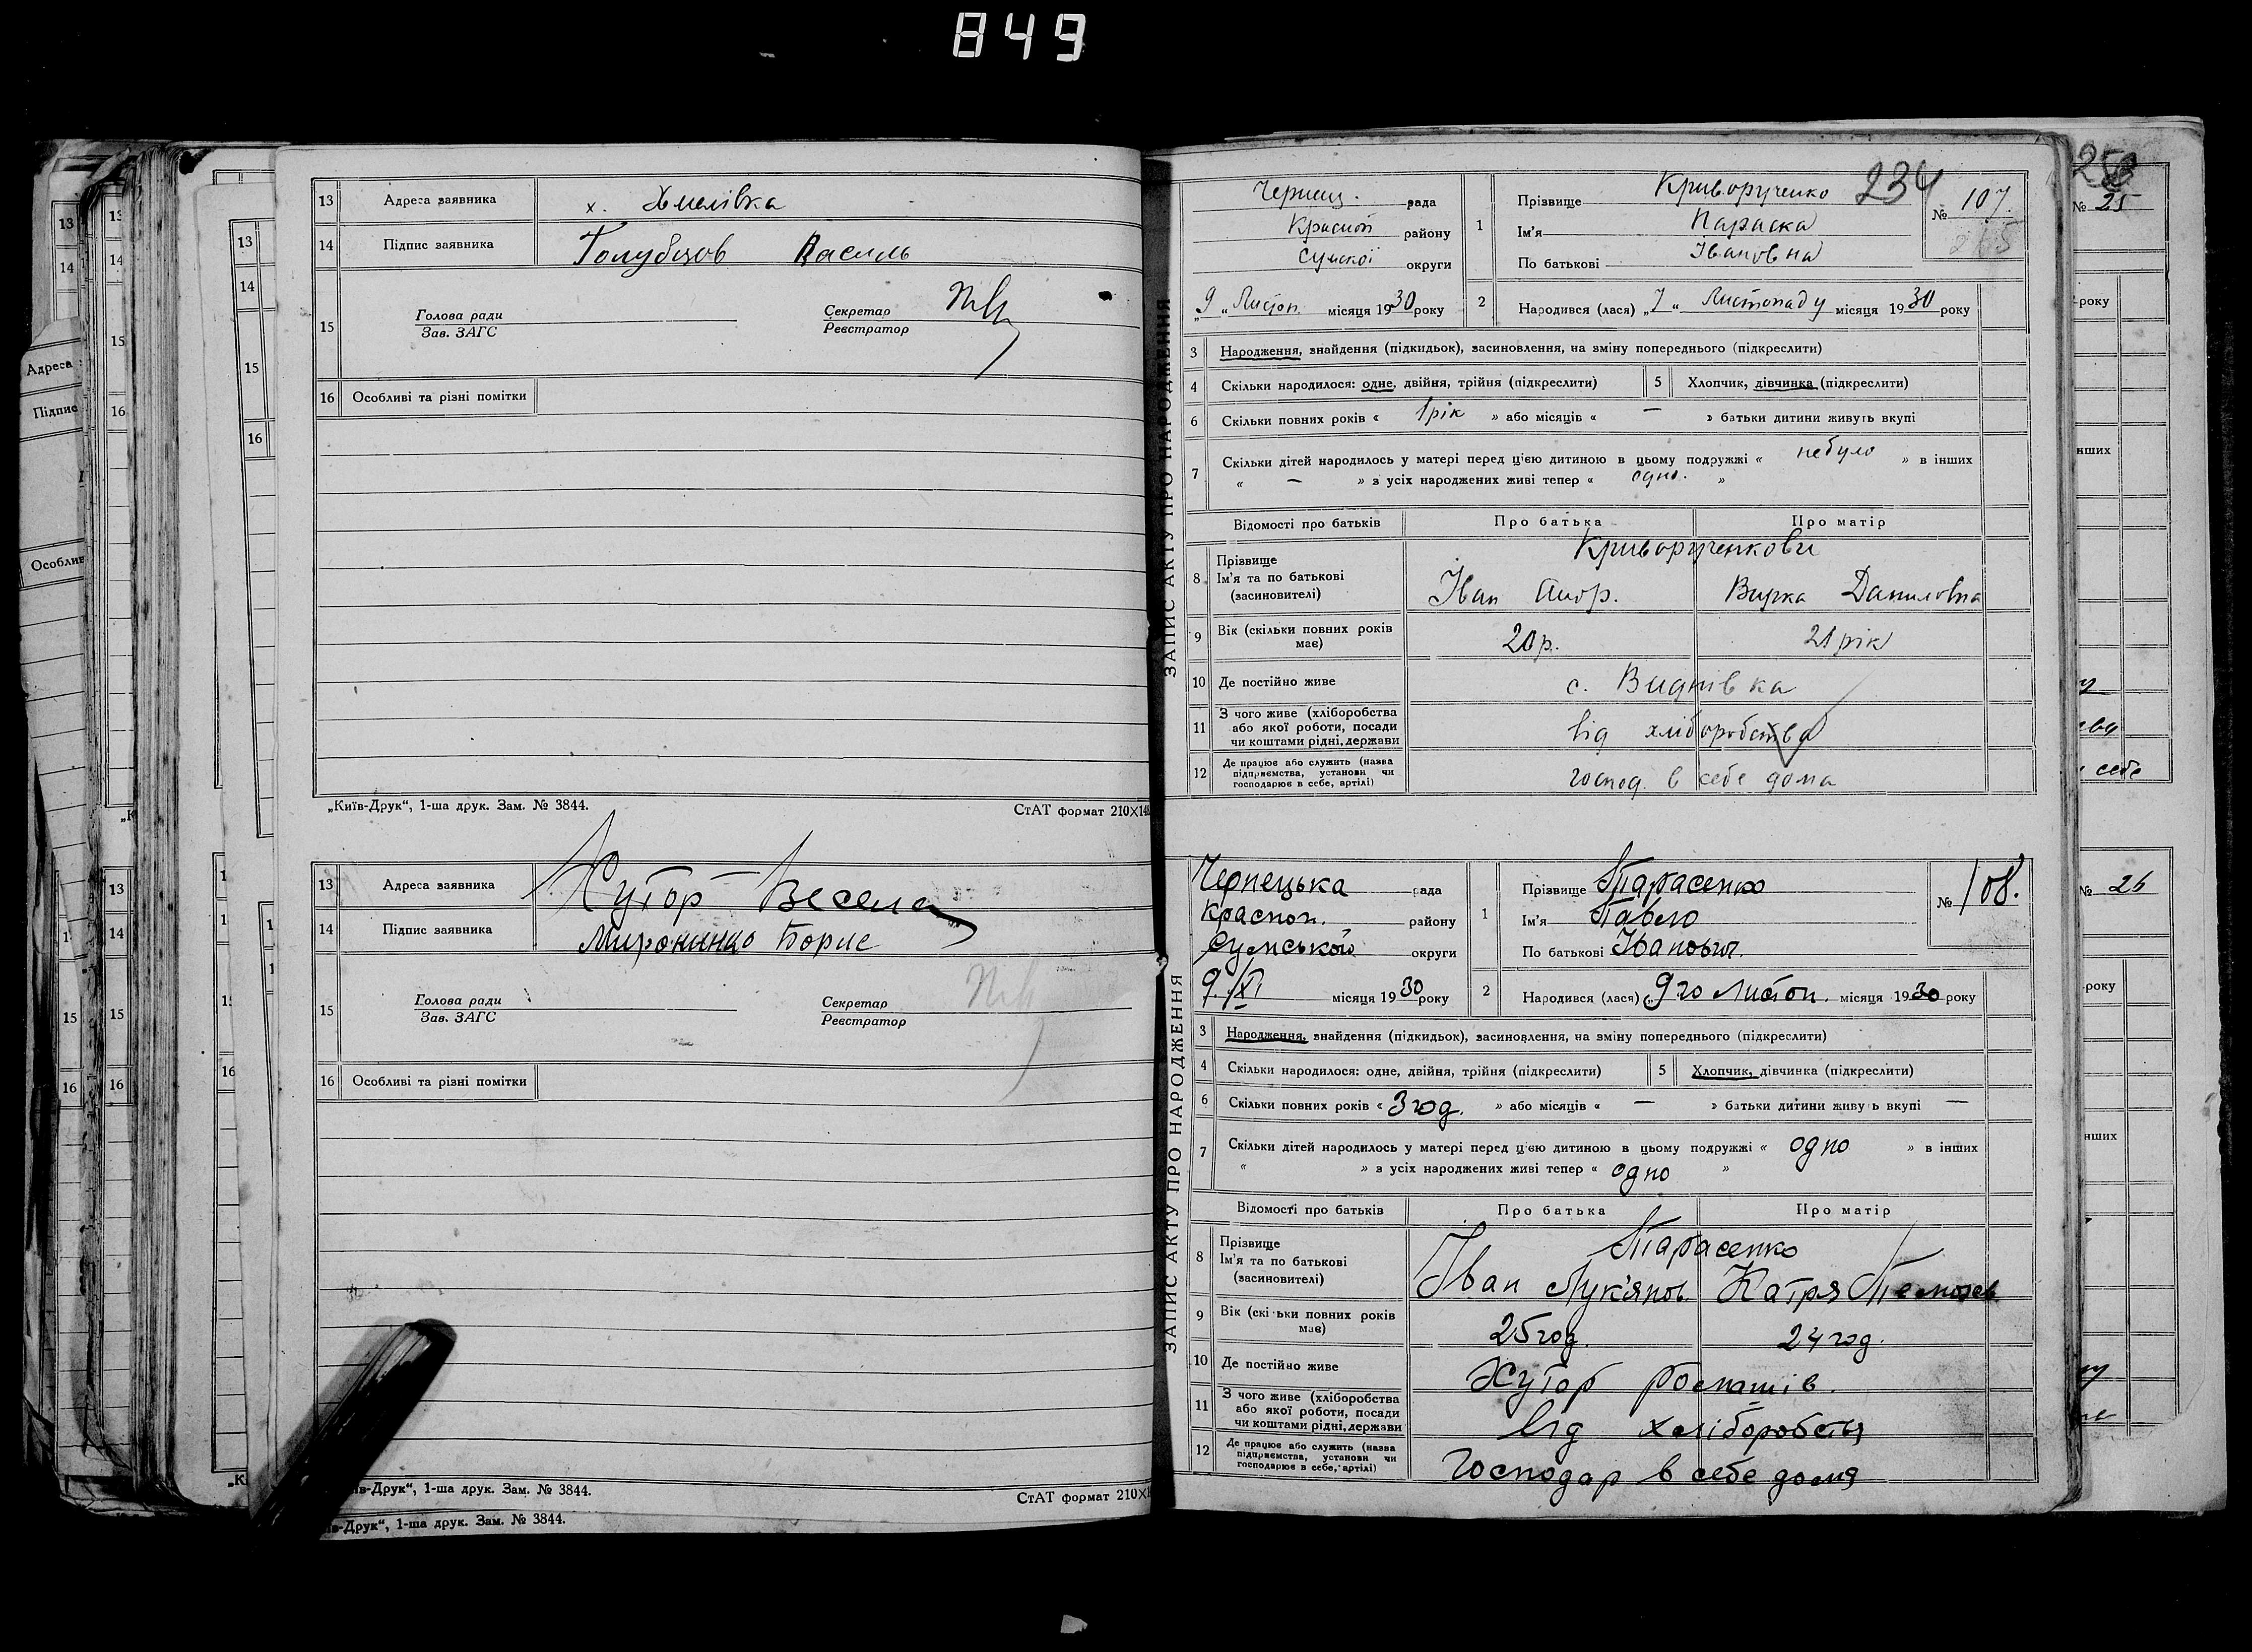 849
13 Адреса заявника х. Хмелівка
14 Підпис заявника Голубцов Василь
15 Голова ради
Зав. ЗАГС
Секретар
Реєстратор
16 Особливі та різні помітки
„Київ-Друк“, 1-ша друк. Зам. № 3844.
СтАТ формат 210×14
13 Адреса заявника Хутор Весела
14 Підпис заявника Борис
15 Голова ради
Зав. ЗАГС
Секретар
Реєстратор
16 Особливі та різні помітки
ів-Друк“, 1-ша друк. Зам. № 3844.
СтАТ формат 210×
ів-Друк“, 1-ша друк. Зам. № 3844.
234
ЗАПИС АКТУ ПРО НАРОДЖЕННЯ
Чернец. рада
Красноп району
Сумскої округи
„9„ Листоп. місяця 1930 року
1 Прізвище Криворученко
Ім'я Параска
По батькові Івановна
№ 107.
2 Народився (лася) „7“ Листопаду місяця 1930 року
3 Народження, знайдення (підкидьок), засиновлення, на зміну попереднього (підкреслити)
4 Скільки народилося: одне, двійня, трійня (підкреслити) 5 Хлопчик, дівчинка (підкреслити)
6 Скільки повних років « 1 рік » або місяців « — » батьки дитини живуть вкупі
7 Скільки дітей народилось у матері перед цією дитиною в цьому подружжі « небуло » в інших
« — » з усіх народжених живі тепер « одно. »
Відомості про батьків Про батька Про матір
8 Прізвище
Ім'я та по батькові
(засиновителі)
Криворученкови
Іван Вирка Даниловна
9 Вік (скільки повних років має) 20 р. 21 рік
10 Де постійно живе с. Виднівка
11 З чого живе (хліборобства
або якої роботи, посади
чи коштами рідні, держави
від хліборобства
12 Де працює або служить (назва
підприємства, установи чи
господарює в себе, артілі)
господ. в себе дома
ЗАПИС АКТУ ПРО НАРОДЖЕННЯ
Чернецька рада
Красноп. району
Сумської округи
9/XI місяця 1930 року
1 Прізвище Тарасенко
Ім'я Павло
По батькові Іванович.
№ 108.
2 Народився (лася) „9го Листоп. місяця 1930 року
3 Народження, знайдення (підкидьок), засиновлення, на зміну попереднього (підкреслити)
4 Скільки народилося: одне, двійня, трійня (підкреслити) 5 Хлопчик, дівчинка (підкреслити)
6 Скільки повних років « 3 год. » або місяців « — » батьки дитини живу ь вкупі —
7 Скільки дітей народилось у матері перед цією дитиною в цьому подружжі « одно » в інших
« » з усіх народжених живі тепер « одно »
Відомості про батьків Про батька Про матір
8 Прізвище
Ім'я та по батькові
(засиновителі)
Тарасенко
Іван Лук'янов. Катря
9 Вік (скі ьки повних років має) 25 год. 24 год.
10 Де постійно живе Хутор
11 З чого живе (хліборобства
або якої роботи, посади
чи коштами рідні, держави
від хліборобства
12 Де працює або служить (назва
підприємства, установи чи
господарює в себе, артілі)
Господар в себе дома
№ 25
року
нших
себе
№ 26
року
нших